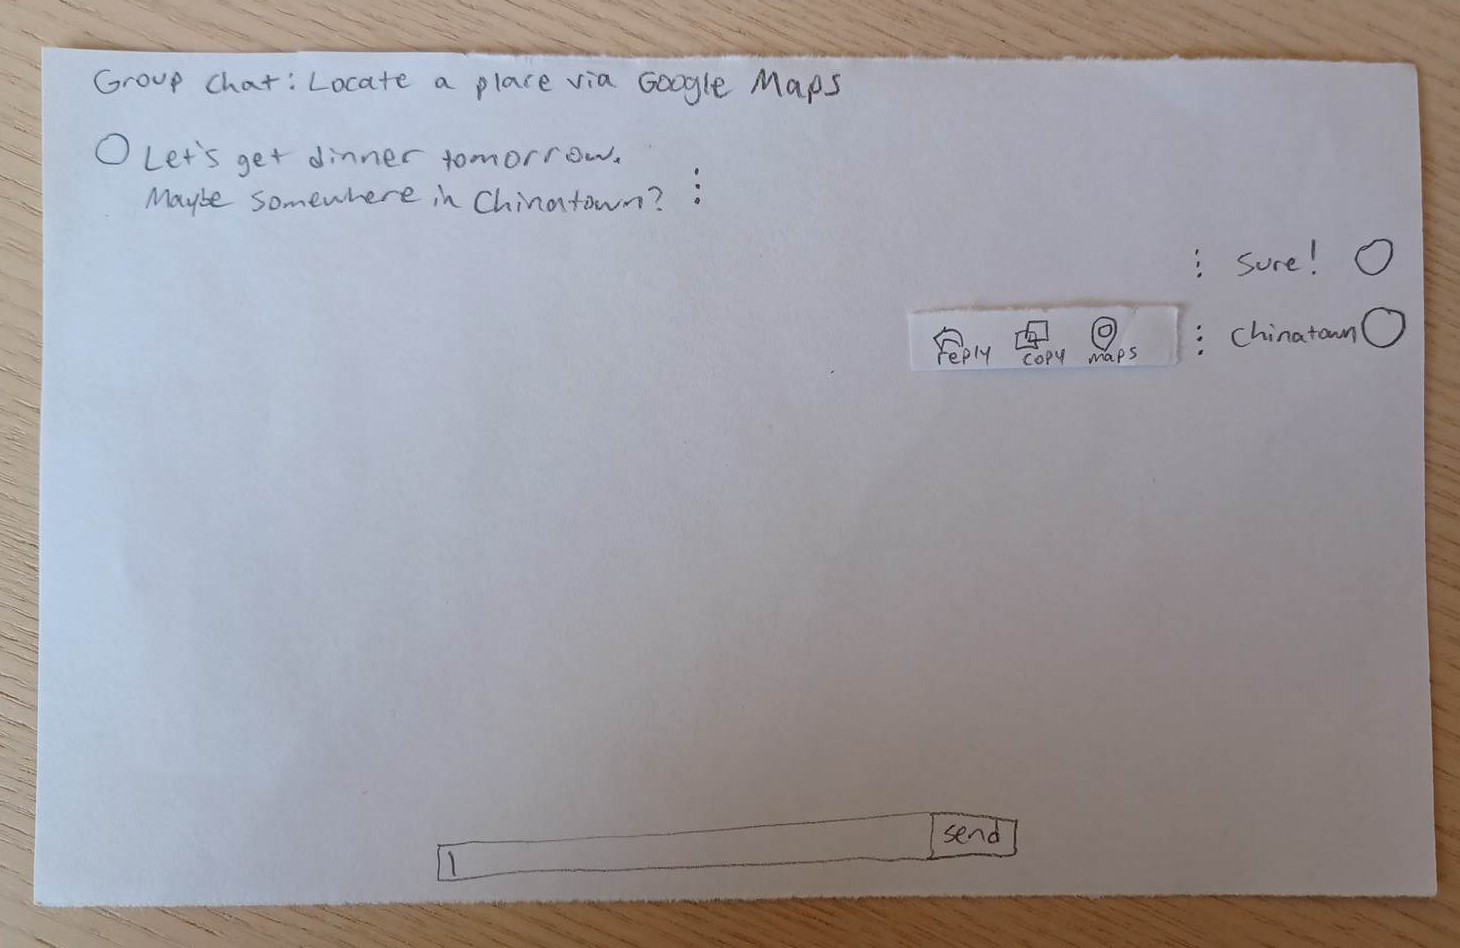 Group Chat: Locate a place via Google Maps
Let's get dinner tomorrow.
Maybe somewhere in Chinatown?
Sure!
reply copy maps
Chinatown
send